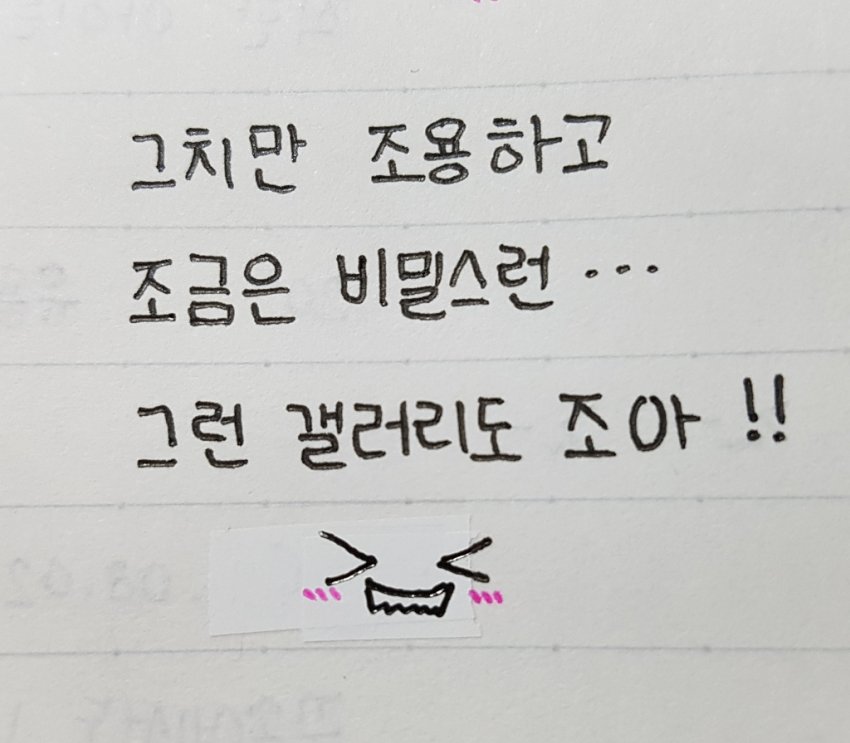 그치만 조용하고
조금은 비밀스런...
그런 갤러리도 조아!!